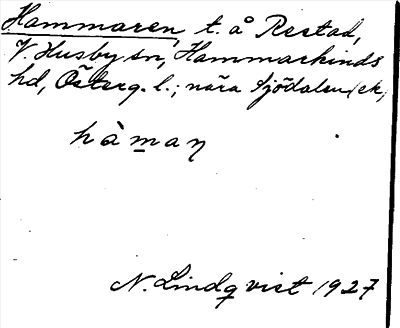 Hammaren, t. å Restad,
V. Husby sn, Hammarkinds
hd, Österg. l.; nära Sjödalen(ek,
hàmaŋ
N. Lindqvist 1927